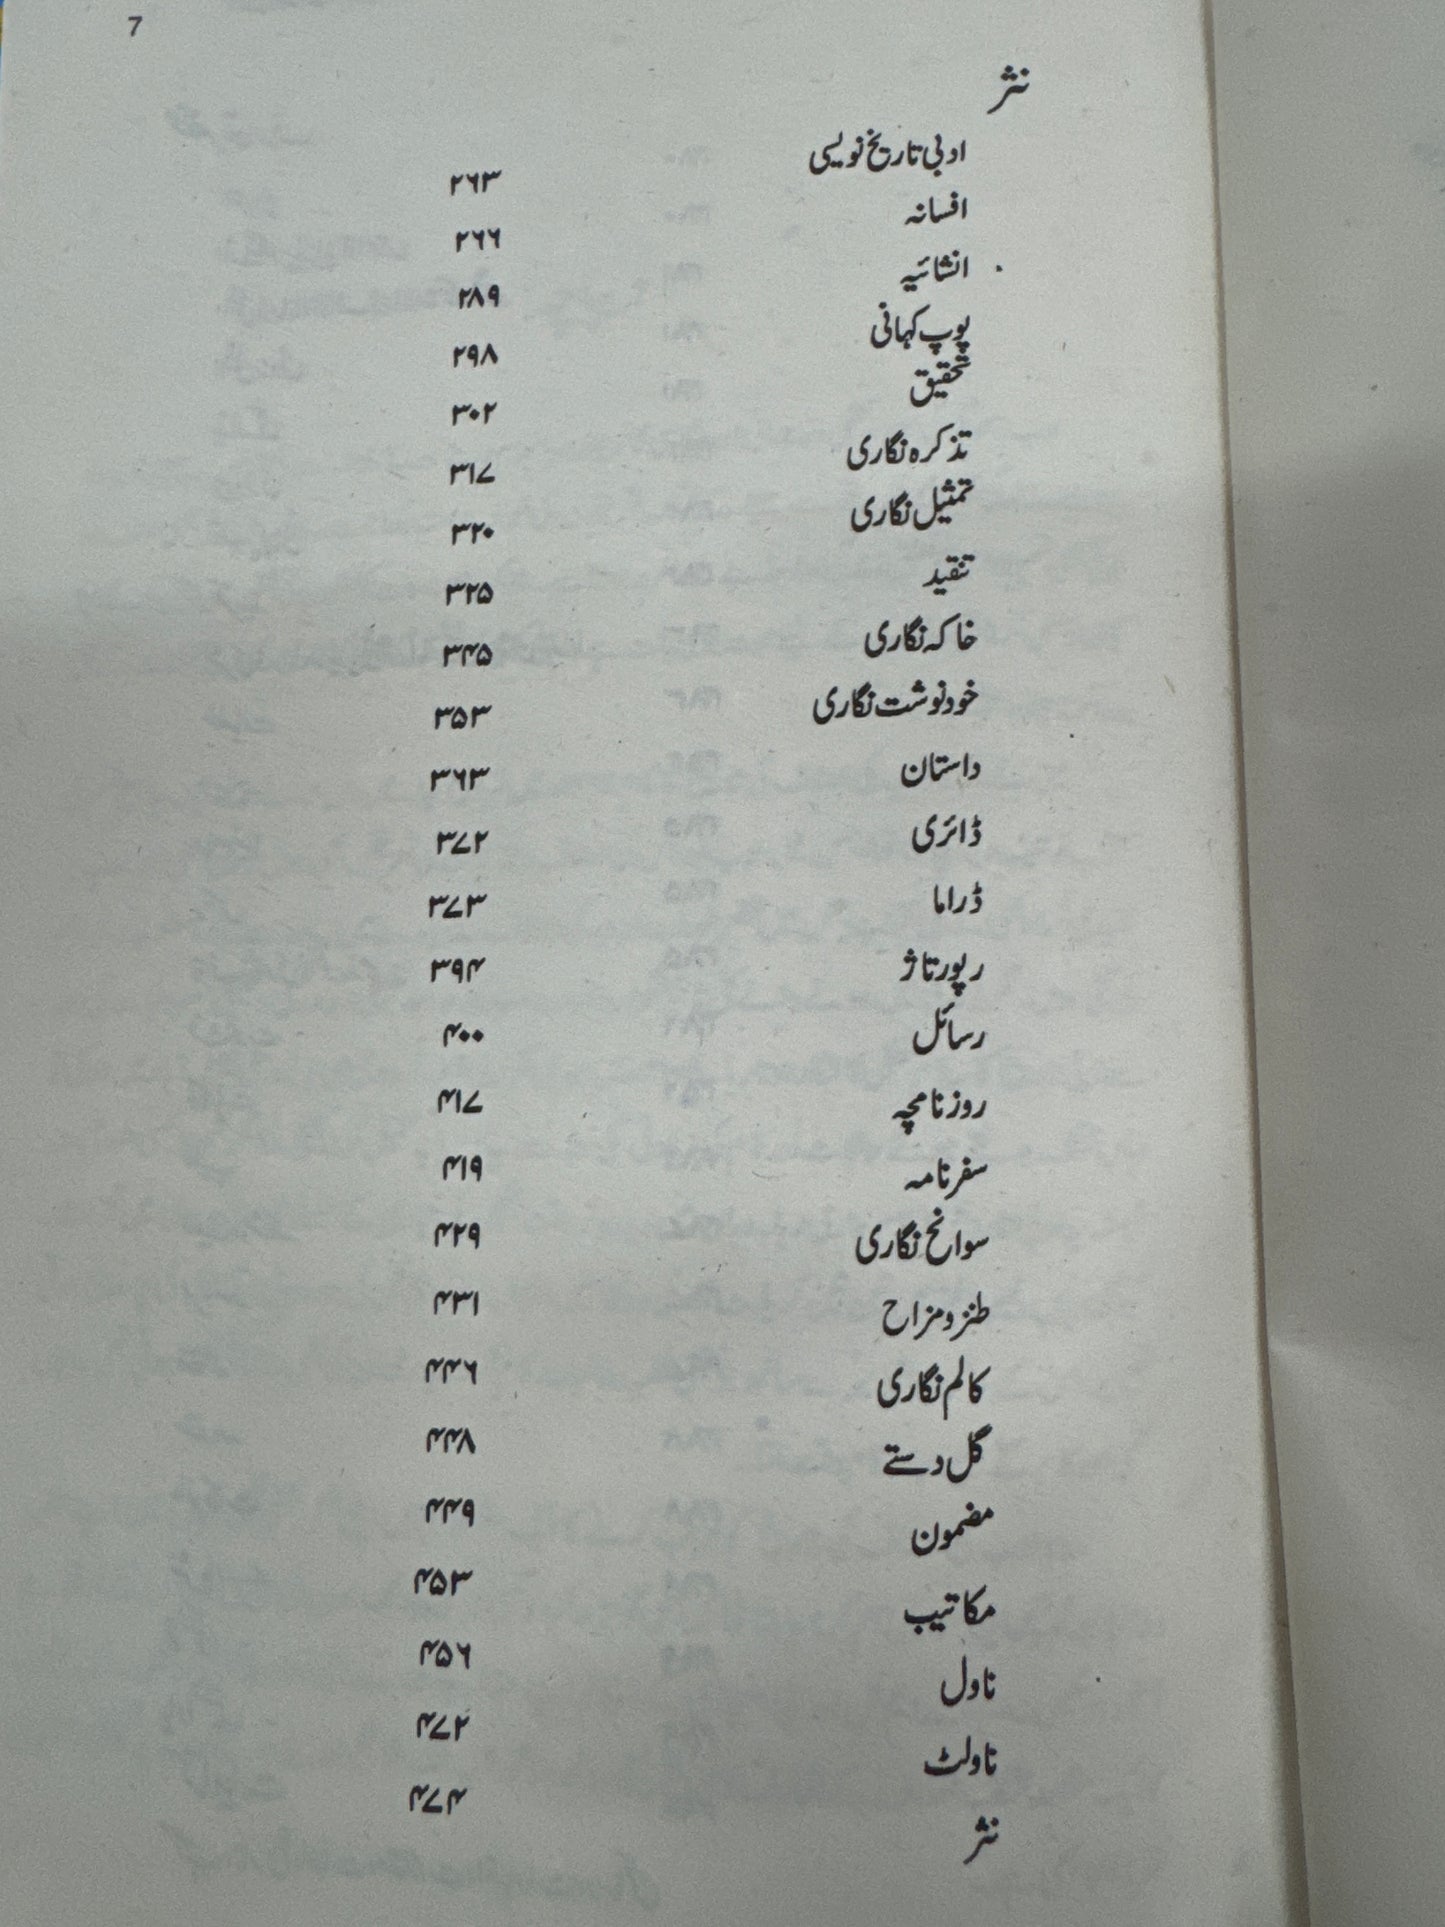 7
نثر
ادبی تاریخ نویسی ۲۶۳
افسانہ ۲۶۶
انشائیہ ۲۸۹
پوپ کہانی ۲۹۸
تحقیق ۳۰۲
تذکرہ نگاری ۳۱۷
تمثیل نگاری ۳۲۰
تنقید ۳۲۵
خاکہ نگاری ۳۴۵
خودنوشت نگاری ۳۵۳
داستان ۳۶۳
ڈائری ۳۷۲
ڈراما ۳۷۳
رپورتاژ ۳۹۴
رسائل ۴۰۰
روزنامچہ ۴۱۷
سفرنامہ ۴۱۹
سوانح نگاری ۴۲۹
طنزومزاح ۴۳۱
کالم نگاری ۴۴۶
گل دستے ۴۴۸
مضمون ۴۴۹
مکاتیب ۴۵۳
ناول ۴۵۶
ناولٹ ۴۷۲
نثر ۴۷۴